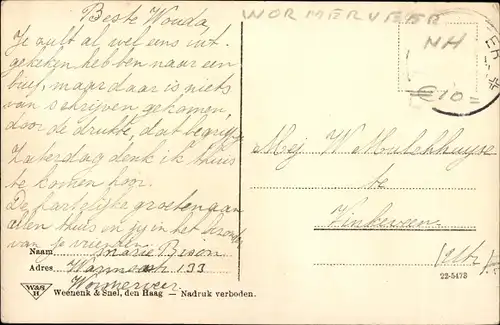 Beste Wouda,
Je zult al wel eens uit
gekeken hebben naar een
brief, maar daar is niets
van schrijven gekomen,
door de drukte, dat begrijp
Zaterdag denk ik thuis
te komen hoor.
De hartelijke groeten aan
allen thuis en jij in het
van je vriendin
Naam Marie
Adres, 133
Wormerveer
WORMERVEER
NH
Mej W
te
Vinkeveen
(Utr)
22-5473
W&S
H
Weenenk & Snel, den Haag — Nadruk verboden.